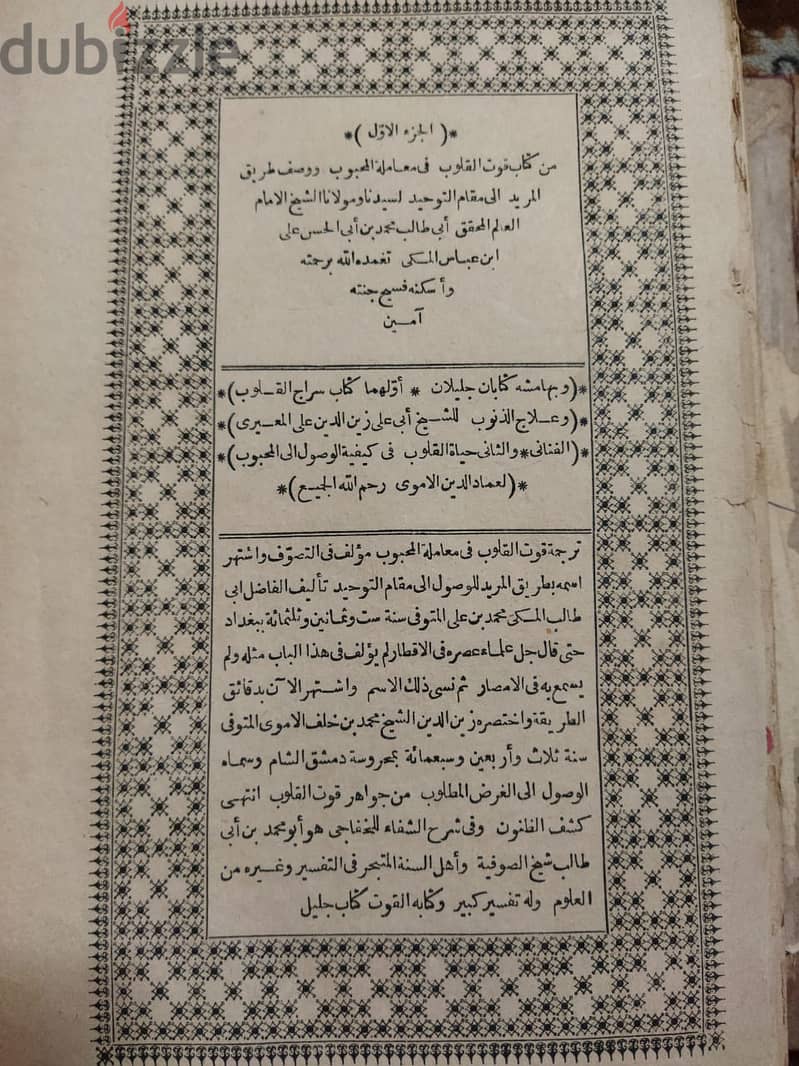 dubizzle
*( الجزء الاوّل )*
من كتاب قوت القلوب فى معاملة المحبوب ووصف طريق
المريد الى مقام التوحيد لسيدنا ومولانا الشيخ الامام
العالم المحقق أبي طالب محمد بن أبي الحسن على
ابن عباس المكى تغمده الله برحمته
وأسكنه فسيح جنته
آمين
*( وبهامشه كتابان جليلان * أوّلهما كتاب سراج القلوب )*
*( وعلاج الذنوب للشيخ أبى على زين الدين على المعبرى )*
*( الفنانى * والثانى حياة القلوب فى كيفية الوصول الى المحبوب )*
*( لعماد الدين الاموى رحم الله الجميع )*
ترجمة قوت القلوب فى معاملة المحبوب مؤلف فى التصوّف واشتهر
اسمه بطريق المريد للوصول الى مقام التوحيد تأليف الفاضل ابى
طالب المكى محمد بن على المتوفى سنة ست وثمانين وثلثمائة ببغداد
حتى قال جل علماء عصره فى الاقطار لم يؤلف فى هذا الباب مثله ولم
يسمع به فى الامصار ثم نسى ذلك الاسم واشتهر الآن بدقائق
الطريقة واختصره زين الدين الشيخ محمد بن خلف الاموى المتوفى
سنة ثلاث وأربعين وسبعمائة بمحروسة دمشق الشام وسماه
الوصول الى الغرض المطلوب من جواهر قوت القلوب انتهى
كشف الظنون وفى شرح الشفاء للخفاجى هو أبو محمد بن أبى
طالب شيخ الصوفية وأهل السنة المتبحر فى التفسير وغيره من
العلوم وله تفسير كبير وكتابه القوت كتاب جليل